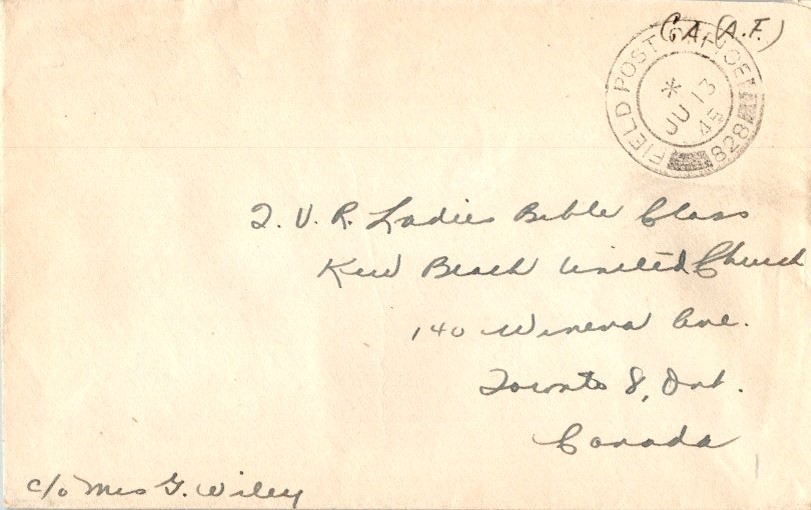 C.A.(A.F.)
FIELD POST OFFICE 828
* JU 13 45
J. V. R. Ladies Bible Class
Kew Beach United Church
140 Wineva Ave.
Toronto 8, Ont.
Canada
c/o Mrs G. Wiley